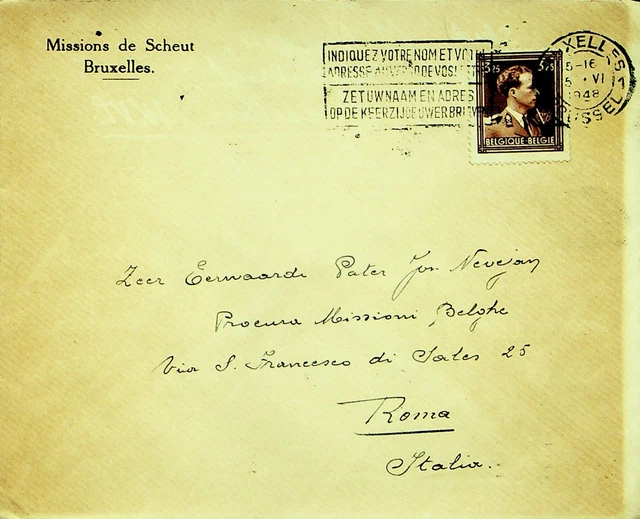 Missions de Scheut
Bruxelles.
INDIQUEZ VOTRE NOM ET
ADRESSE DE VOS
ZET UW NAAM EN ADRES
OP DE KEERZIJDE UWER BRIEVEN
XELLES 1
15-16
5 · VI
1948
BRUSSEL
5F75
BELGIQUE·BELGIE
Zeer Eerwaarde Pater Jos. Nevejan
Procura Missioni Belghe
Via S. Francesco di Sales 25
Roma
Italia.